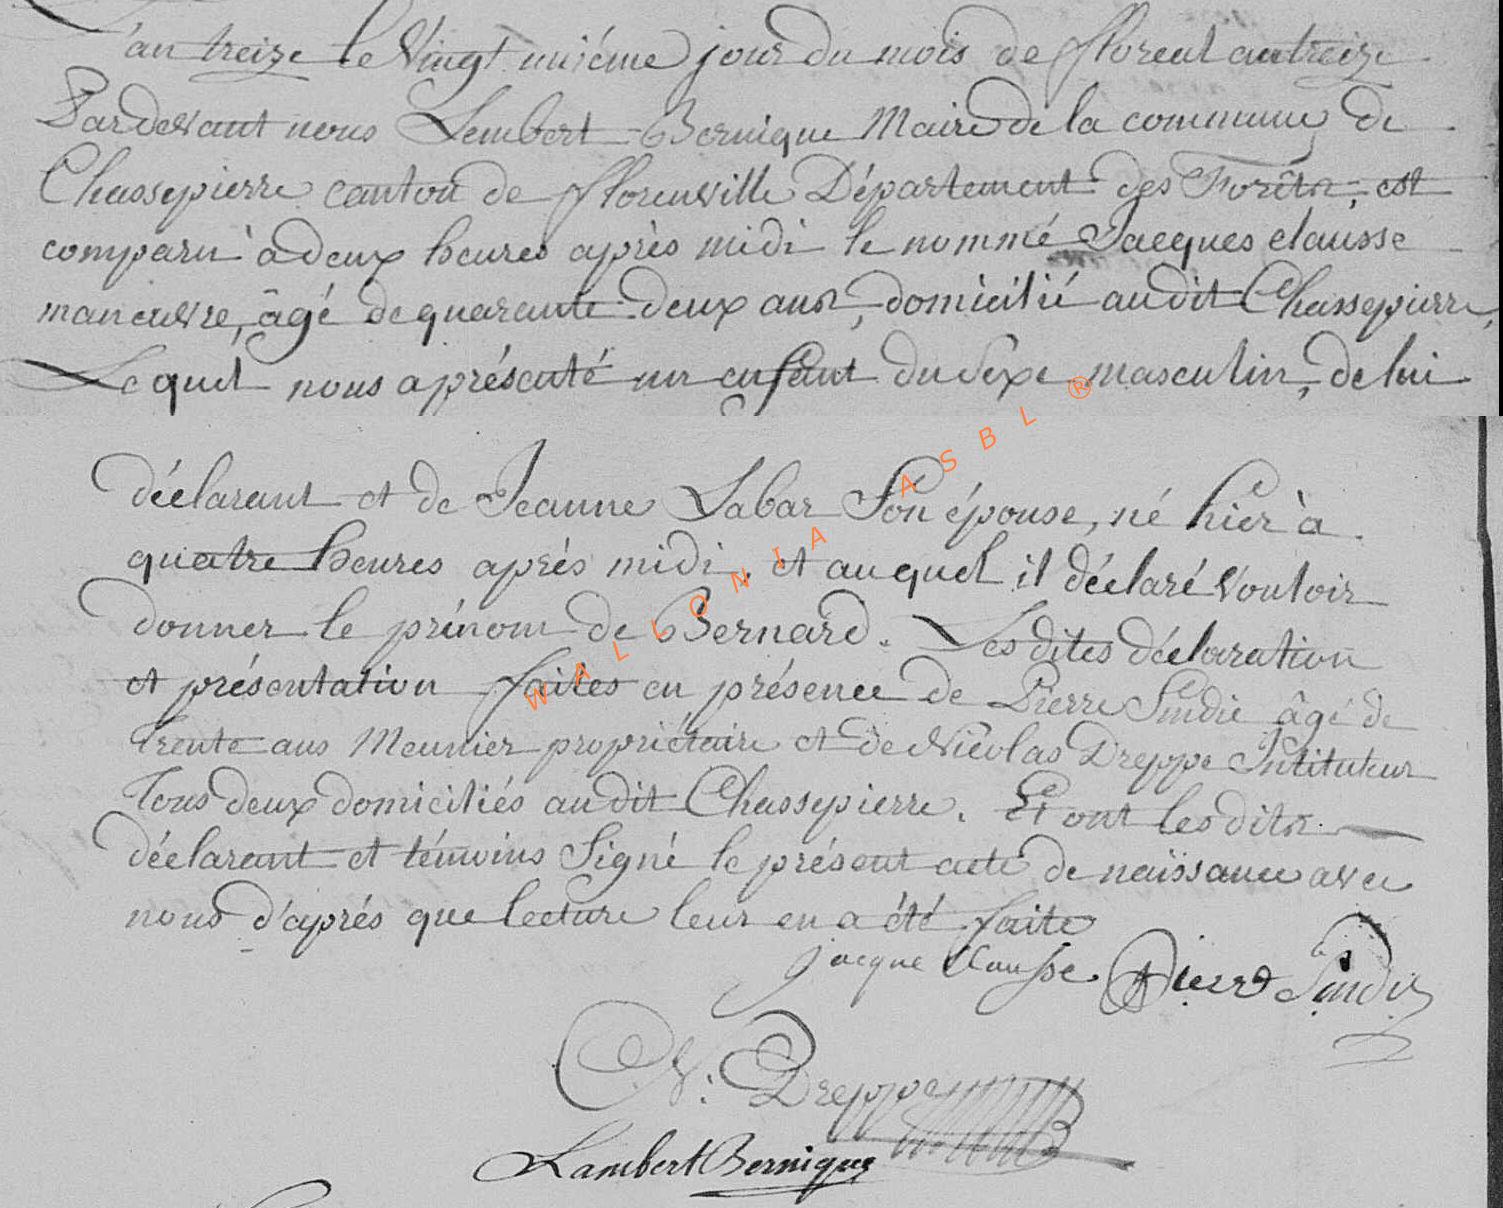 L'an treize le Vingt uniéme jour du mois de floreal an treize
Pardevant nous Lembert Bernique Maire de la commune de
Chassepierre canton de florenville Département des Forêts, est
comparu à deux heures après midi le nommé Jacques clausse
maneuvre, âgé de quarante-deux ans, domicilié audit Chassepierre,
Lequel nous a présenté un enfant du Sexe masculin, de lui
déclarant et de Jeanne Labar Son épouse, né hier à
quatre heures aprés midi, et auquel il déclaré Vouloir
donner le prénom de Bernard. Les dites déclaration
et présentation faites en présence de Pierre Sindic âgé de
Trente ans Meunier propriétaire et de Nicolas Dreppe Intituteur
Tous deux domiciliés audit Chassepierre. Et ont les dits
déclarant et témoins Signé le présent acte de naïssance avec
nous d'aprés que lecture leur en a été faite
jacque Clausse Pierre Sindic
N: Dreppe
Lambert Bernique
WALLONIA ASBL ®